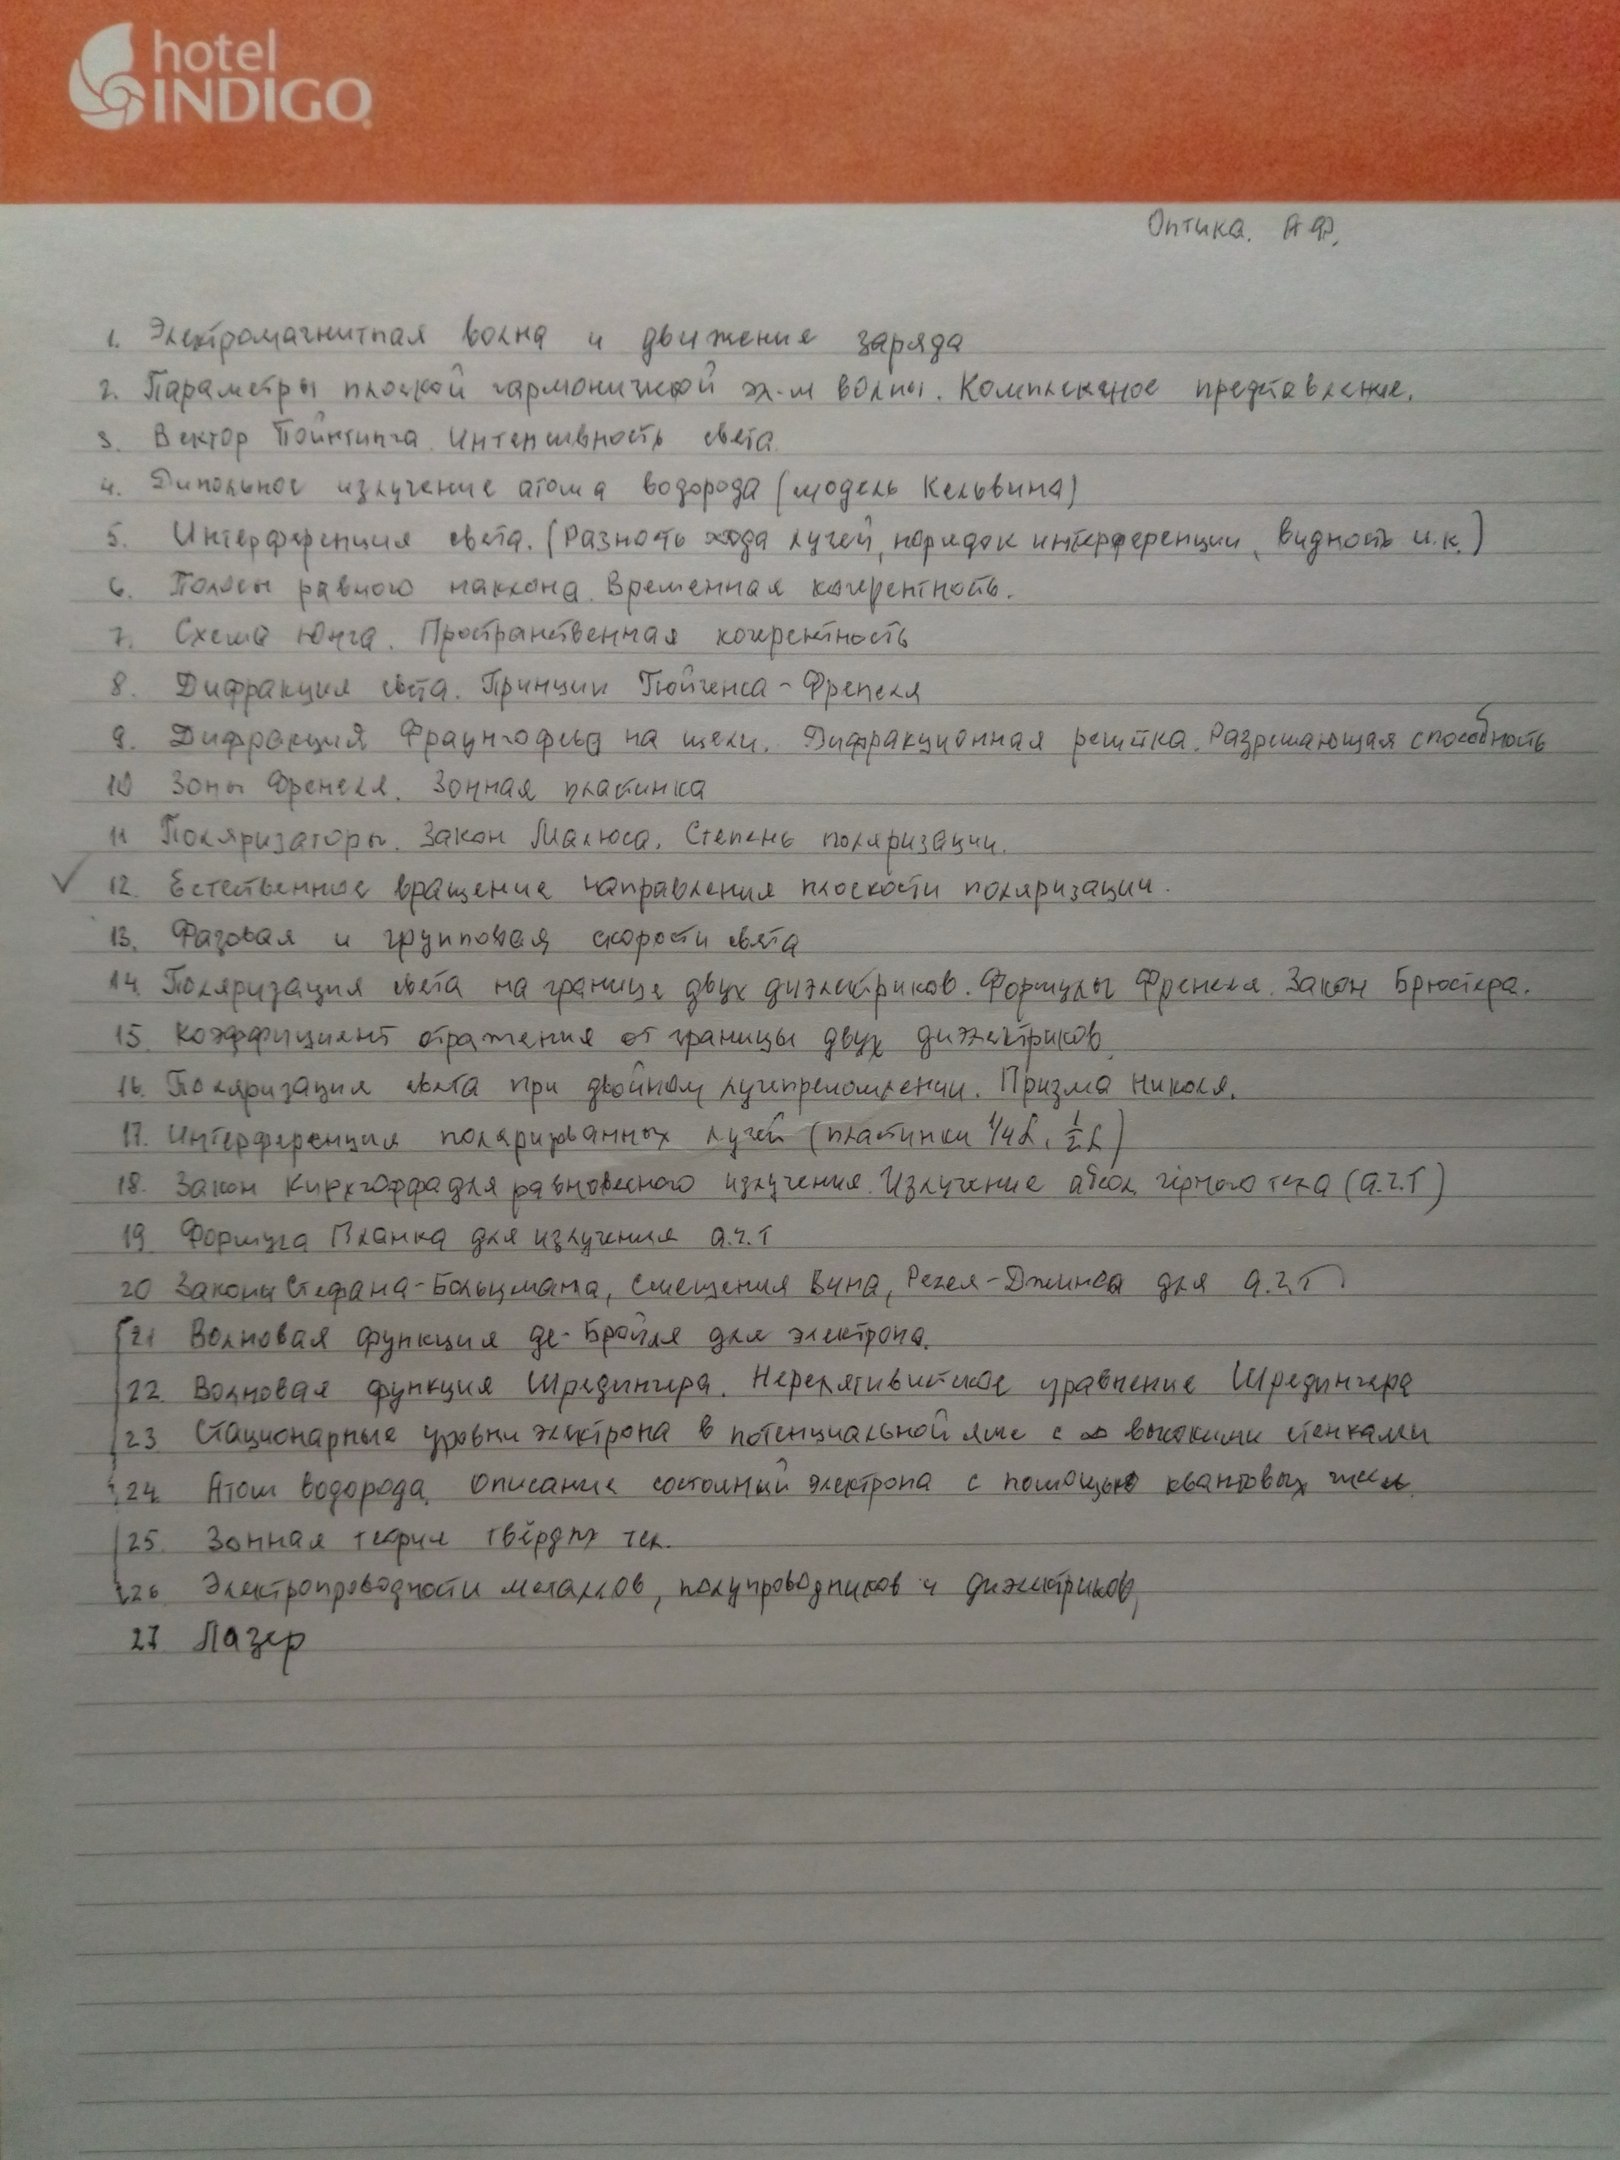 hotel
INDIGO
Оптика. АФ.
1. Электромагнитная волна и движение заряда
2. Параметры плоской гармонической эл-м волны. Комплексное представление.
3. Вектор Пойнтинга. Интенсивность света.
4. Дипольное излучение атома водорода (модель Кельвина)
5. Интерференция света. (Разность хода лучей, порядок интерференции, видность и.к.)
6. Полосы равного наклона. Временная когерентность.
7. Схема Юнга. Пространственная когерентность
8. Дифракция света. Принцип Гюйгенса-Френеля
9. Дифракция Фраунгофера на щели. Дифракционная решётка. Разрешающая способность
10 Зоны Френеля. Зонная пластинка
11 Поляризаторы. Закон Малюса. Степень поляризации.
✓ 12. Естественное вращение направления плоскости поляризации.
13. Фазовая и групповая скорости света
14. Поляризация света на границе двух диэлектриков. Формулы Френеля. Закон Брюстера.
15. Коэффициент отражения от границы двух диэлектриков.
16. Поляризация света при двойном лучепреломлении. Призма Николя.
17. Интерференция поляризованных лучей (пластинки 1/4 λ, 1/2 λ)
18. Закон Кирхгоффа для равновесного излучения. Излучение абсол. чёрного тела (а.ч.т)
19 Формула Планка для излучения а.ч.т
20 Законы Стефана-Больцмана, смещения Вина, Релея-Джинса для а.ч.т
21 Волновая функция де-Бройля для электрона.
22. Волновая функция Шредингера. Нерелятивистское уравнение Шредингера
23 Стационарные уровни электрона в потенциальной яме с ∞ высокими стенками
24. Атом водорода. Описание состояний электрона с помощью квантовых чисел.
25. Зонная теория твёрдых тел.
26. Электропроводности металлов, полупроводников и диэлектриков,
27 Лазер